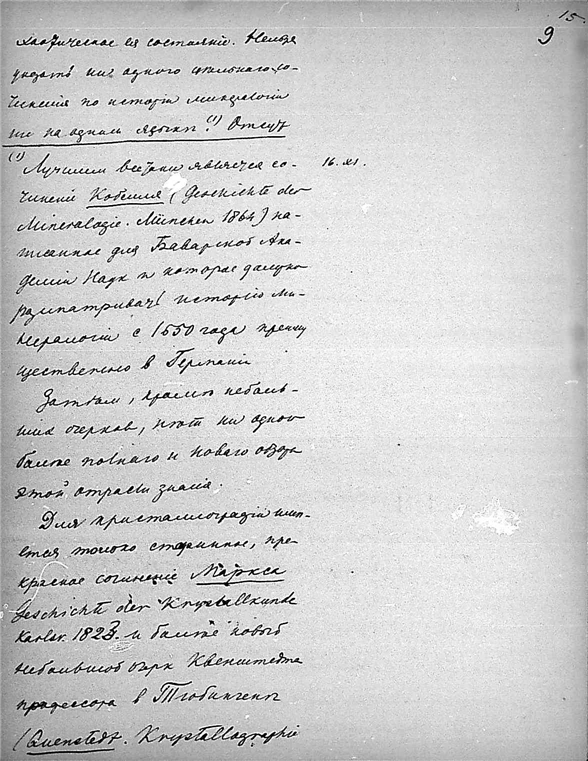 15
9
хаотическое ея состояніе. Нельзя
указать ни одного цѣльнаго со-
чиненія по исторіи минералогіи
ни на одномъ языкѣ (1). Отсут
(1) Лучшимъ всетаки является со-
16. XI.
чиненіе Кобелля (Geschichte der
Mineralogie. München 1864) на-
писанное для Баварской Ака-
деміи Наукъ и которое
разсматриваетъ исторію ми-
нералогіи с 1650 года преиму
щественно в Германіи
Затѣмъ, кромѣ неболь-
шихъ очерковъ, нѣтъ ни одного
болѣе полнаго и новаго обзора
этой отрасли знанія.
Для кристаллографіи имѣ-
ется только старинное, пре-
красное сочиненіе Маркса
Geschichte der Krystallkunde
Karlsr. 1823. и болѣе новый
небольшой очеркъ Квенштедта
профессора в Тюбингенѣ
(Quenstedt. Krystallographie